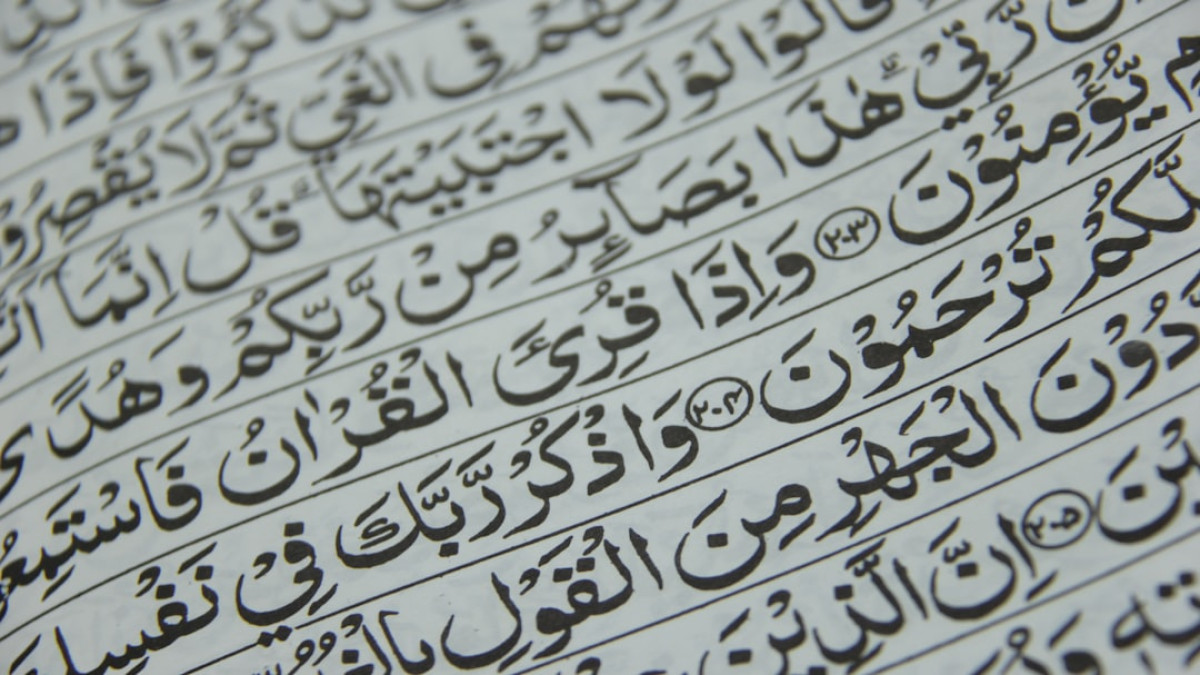 تَذَكَّرُوْا فَاِذَا
فِى الْغَيِّ ثُمَّ لَا يُقْصِرُوْ
قَالُوْا لَوْلَا اجْتَبَيْتَهَا ۗ قُلْ اِنَّمَآ
رَّبِّيْ ۗ هٰذَا بَصَآئِرُ مِنْ رَّبِّكُمْ وَهُدًى
يُّؤْمِنُوْنَ ٢٠٣ وَاِذَا قُرِئَ الْقُرْاٰنُ فَاسْتَمِعُ
لَّكُمْ تُرْحَمُوْنَ ٢٠٤ وَاذْكُرْ رَّبَّكَ فِيْ نَفْسِكَ
دُوْنَ الْجَهْرِ مِنَ الْقَوْلِ بِالْغُدُ
يْنَ ٢٠٥ اِنَّ الَّذِيْنَ